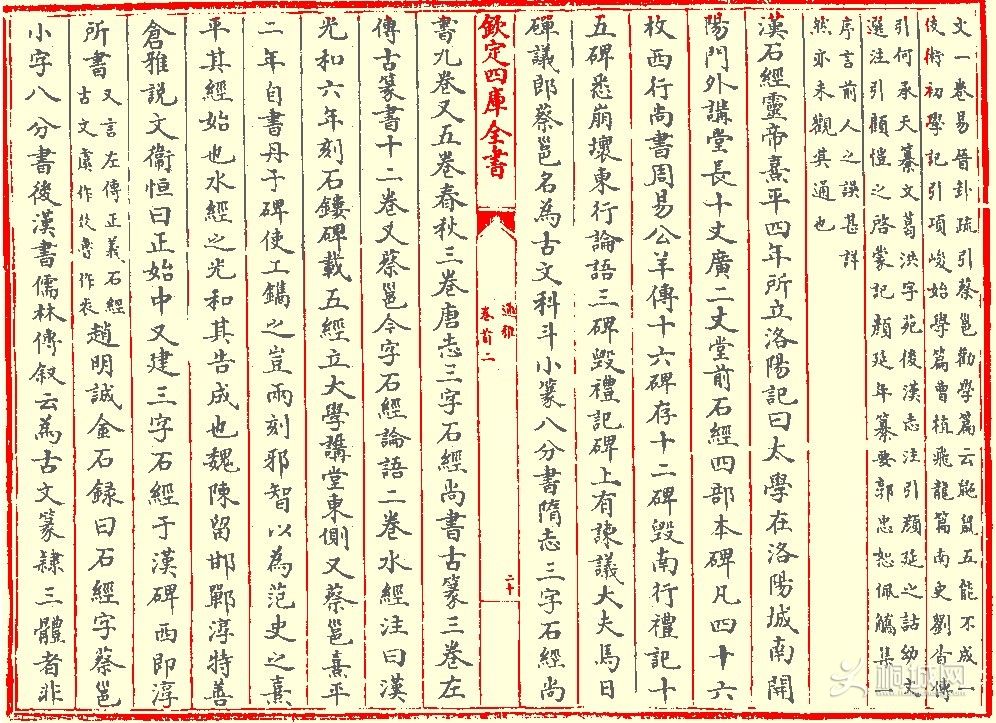 文一卷易晉卦疏引蔡邕勸學篇云鼫鼠五能不成一
伎術初學記引項峻始學篇曹植飛龍篇南史劉杳傳
引何承天纂文葛洪字苑後漢志注引顏延之詁幼文
選注引顧愷之啓蒙記顏延年纂要郭忠恕佩觿集一
序言前人之誤甚詳
然亦未觀其通也
漢石經靈帝熹平四年所立洛陽記曰太學在洛陽城南開
陽門外講堂長十丈廣二丈堂前石經四部本碑凡四十六
枚西行尚書周易公羊傳十六碑存十二碑毀南行禮記十
五碑悉崩壞東行論語三碑毀禮記碑上有諫議大夫馬日
磾議郎蔡邕名為古文科斗小篆八分書隋志三字石經尚
欽定四庫全書
通雅
卷首二
二十
書九卷又五卷春秋三卷唐志三字石經尚書古篆三卷左
傳古篆書十二卷又蔡邕今字石經論語二卷水經注曰漢
光和六年刻石鏤碑載五經立大學講堂東側又蔡邕熹平
二年自書丹于碑使工鐫之豈兩刻邪智以為范史之熹
平其經始也水經之光和其告成也魏陳留邯鄲淳特善
倉雅説文衞恒曰正始中又建三字石經于漢碑西即淳
所書又言左傳正義石經古文虞作㕦魯作㫃趙明誠金石録曰石經字蔡邕
小字八分書後漢書儒林傳叙云為古文篆隸三體者非
桐城网